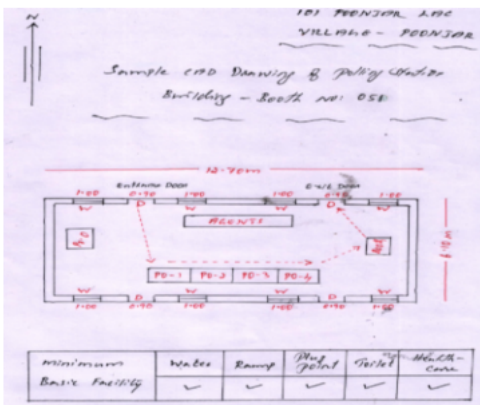 N
101 POONJAR LAC
VILLAGE - POONJAR
Sample CAD Drawing of Polling Station
Building - Booth No: 051
12.70m
Entrance Door
Exit Door
1.00 0.90 1.00 1.00 0.90 1.00
W D W W D W
AGENTS
PO-1 PO-2 PO-3 PO-4
W D W W D W
1.00 0.90 1.00 1.00 0.90 1.00
Minimum Basic Facility
Water
Ramp
Plug Point
Toilet
Health-care
✓ ✓ ✓ ✓ ✓